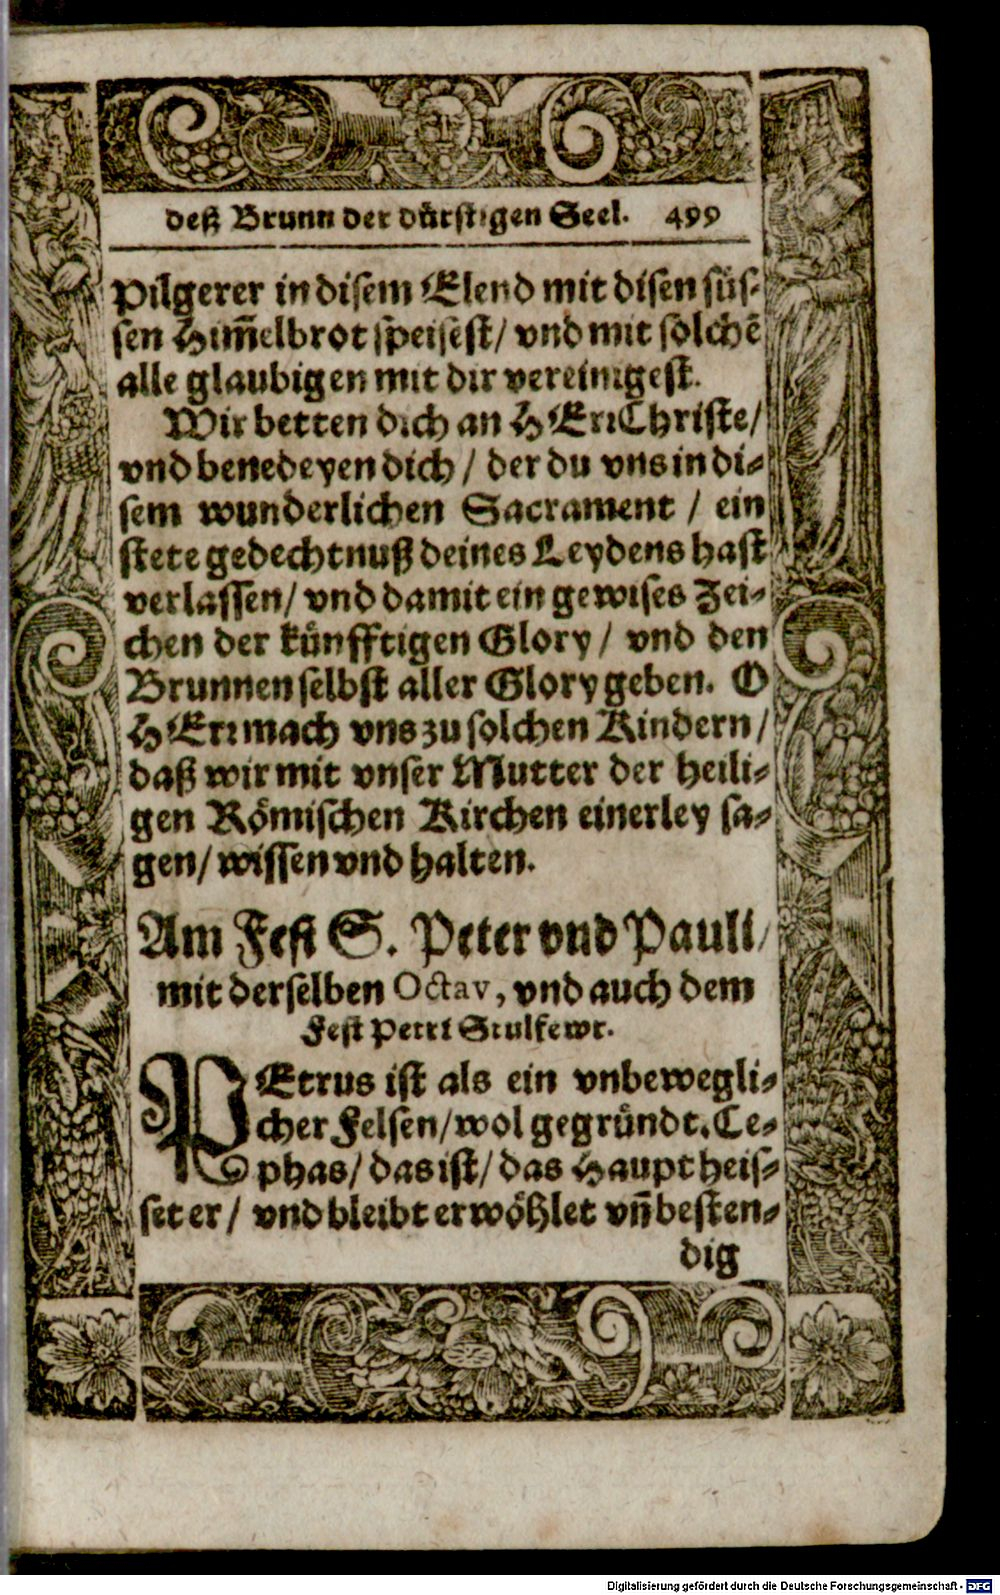 deß Brunn der dürstigen Seel. 499
Pilgerer in disem Elend mit disen süs-
sen Him̃elbrot speisest/ vnd mit solchẽ
alle glaubigen mit dir vereinigest.
Wir betten dich an HErrChriste/
vnd benedeyen dich/ der du vns in di-
sem wunderlichen Sacrament/ ein
stete gedechtnuß deines Leydens hast
verlassen/ vnd damit ein gewises Zei-
chen der künfftigen Glory/ vnd den
Brunnen selbst aller Glory geben. O
HErr mach vns zu solchen Kindern/
daß wir mit vnser Mutter der heili-
gen Römischen Kirchen einerley sa-
gen/ wissen vnd halten.
Am Fest S. Peter vnd Pauli/
mit derselben Octav, vnd auch dem
Fest Petri Stulfewr.
PEtrus ist als ein vnbewegli-
cher Felsen/ wol gegründt. Ce-
phas/ das ist/ das Haupt heis-
set er/ vnd bleibt erwöhlet vñ besten-
dig
Digitalisierung gefördert durch die Deutsche Forschungsgemeinschaft - DFG